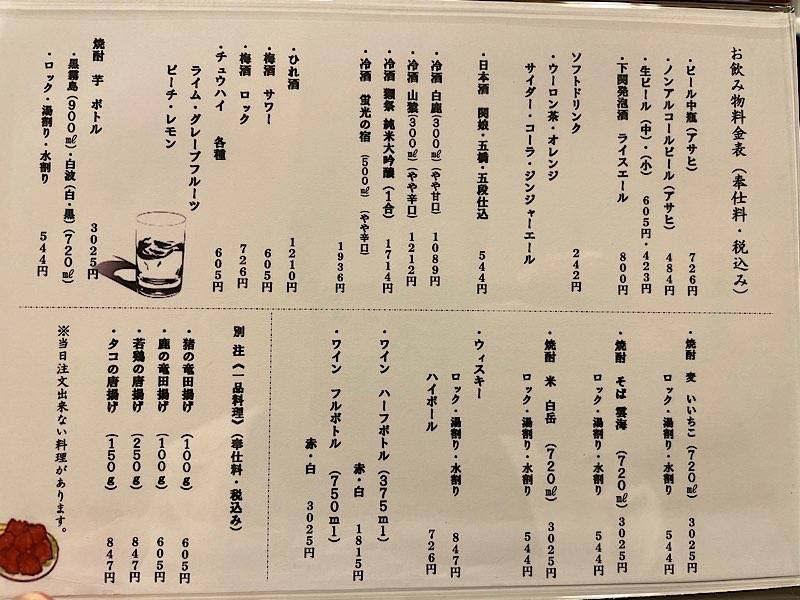 お飲み物料金表（奉仕料・税込み）
・ビール中瓶（アサヒ） 726円
・ノンアルコールビール（アサヒ） 484円
・生ビール（中）・（小） 605円・423円
・下関発泡酒 ライスエール 800円
ソフトドリンク 242円
・ウーロン茶・オレンジ
サイダー・コーラ・ジンジャーエール
・日本酒 関娘・五橋・五段仕込 544円
・冷酒 白鹿（300㎖）（やや甘口） 1089円
・冷酒 山猿（300㎖）（やや辛口） 1212円
・冷酒 獺祭 純米大吟醸（1合） 1714円
・冷酒 蛍光の宿 （500㎖）（やや辛口）
1936円
・ひれ酒 1210円
・梅酒 サワー 605円
・梅酒 ロック 726円
・チュウハイ 各種 605円
ライム・グレープフルーツ
ピーチ・レモン
焼酎 芋 ボトル 3025円
・黒霧島（900㎖）・白波（白・黒）（720㎖）
・ロック・湯割り・水割り 544円
・焼酎 麦 いいちこ（720㎖） 3025円
ロック・湯割り・水割り 544円
・焼酎 そば 雲海 （720㎖） 3025円
ロック・湯割り・水割り 544円
・焼酎 米 白岳 （720㎖） 3025円
ロック・湯割り・水割り 544円
・ウィスキー
ロック・湯割り・水割り 847円
ハイボール 726円
・ワイン ハーフボトル（375ml）
赤・白 1815円
・ワイン フルボトル （750ml）
赤・白 3025円
別 注《一品料理》（奉仕料・税込み）
・猪の竜田揚げ （100g） 605円
・鹿の竜田揚げ （100g） 605円
・若鶏の唐揚げ （250g） 847円
・タコの唐揚げ （150g） 847円
※当日注文出来ない料理があります。